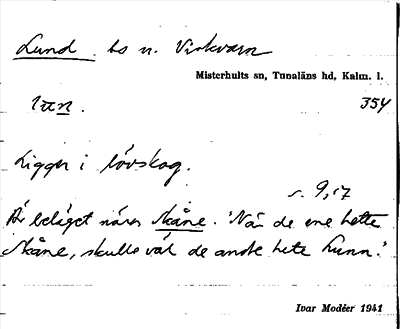 Lund bs n. Virkvarn
Misterhults sn, Tunaläns hd, Kalm. l.
354
Ligger i lövskog.
s. 9, 17
Är beläget nära Skåne. 'När de ene hette
Skåne, skulle väl de andre hete Lunn.'
Ivar Modéer 1941